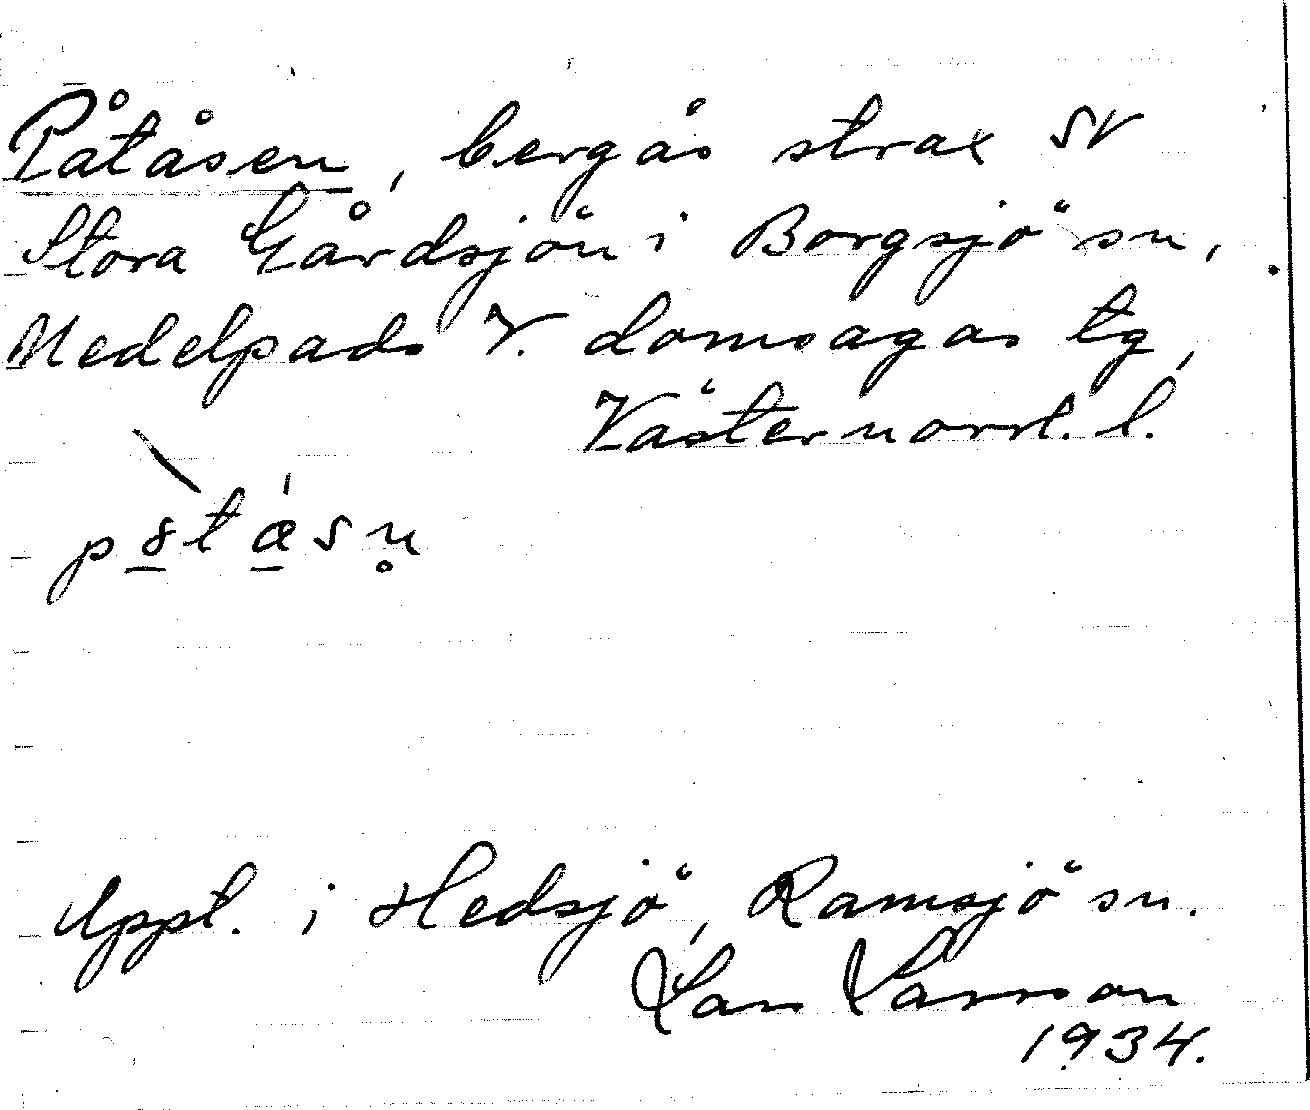 Påtåsen, bergås strax SV
Stora Gårdsjön i Borgsjö sn,
Medelpads V. domsagas tg,
Västernorrl. l.
Uppt. i Hedsjö, Ramsjö sn.
Lars Larsson
1934.